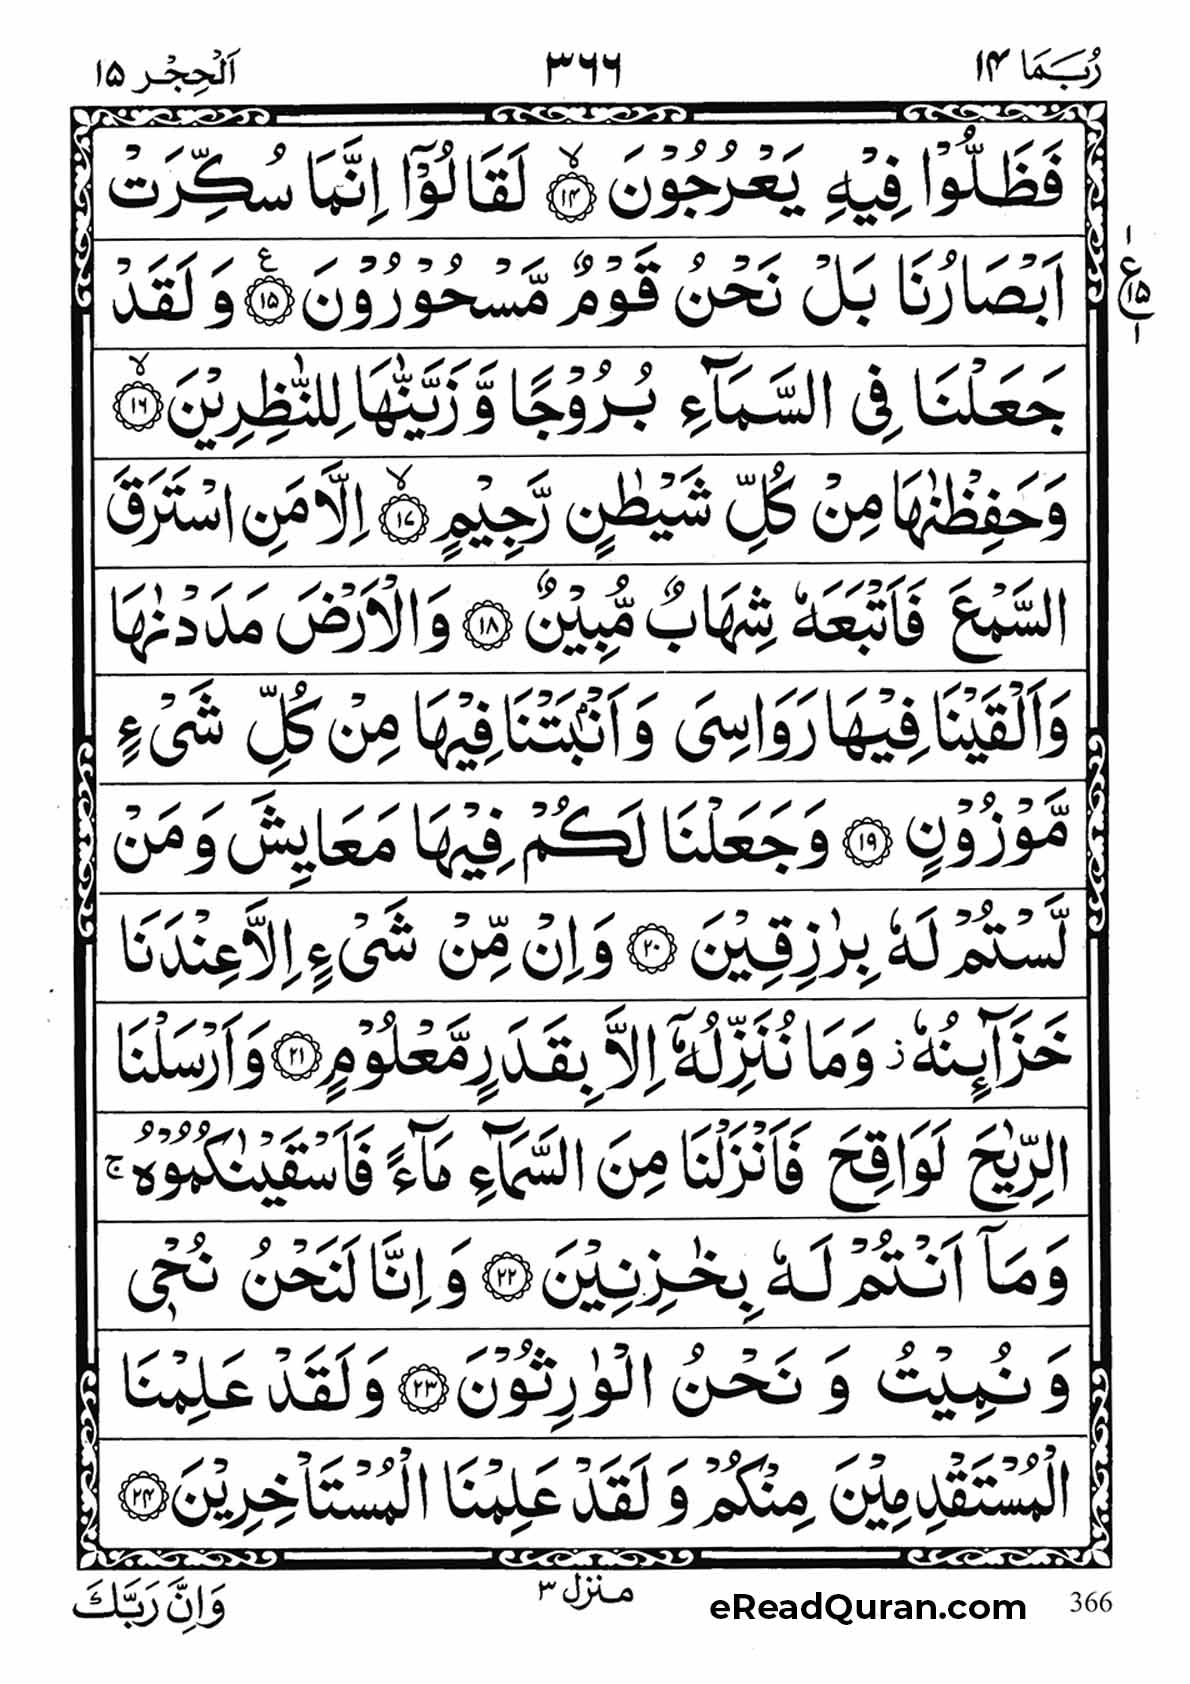 رُبَمَا ١٤
٣٦٦
اَلْحِجْر ١٥
فَظَلُّوْا فِيْهِ يَعْرُجُوْنَ ۙ‏﴿۱۴﴾ لَقَالُوْۤا اِنَّمَا سُكِّرَتْ
اَبْصَارُنَا بَلْ نَحْنُ قَوْمٌ مَّسْحُوْرُوْنَ ﴿۱۵﴾ ع وَ لَقَدْ
جَعَلْنَا فِى السَّمَآءِ بُرُوْجًا وَّ زَيَّنّٰهَا لِلنّٰظِرِيْنَ ۙ‏﴿۱۶﴾
وَحَفِظْنٰهَا مِنْ كُلِّ شَيْطٰنٍ رَّجِيْمٍ ۙ‏﴿۱۷﴾ اِلَّا مَنِ اسْتَرَقَ
السَّمْعَ فَاَتْبَعَهٗ شِهَابٌ مُّبِيْنٌ ﴿۱۸﴾ وَالْاَرْضَ مَدَدْنٰهَا
وَاَلْقَيْنَا فِيْهَا رَوَاسِىَ وَاَنْۢبَتْنَا فِيْهَا مِنْ كُلِّ شَىْءٍ
مَّوْزُوْنٍ ﴿۱۹﴾ وَجَعَلْنَا لَكُمْ فِيْهَا مَعَايِشَ وَمَنْ
لَّسْتُمْ لَهٗ بِرٰزِقِيْنَ ﴿۲۰﴾ وَاِنْ مِّنْ شَىْءٍ اِلَّا عِنْدَنَا
خَزَآئِنُهٗ ز وَمَا نُنَزِّلُهٗۤ اِلَّا بِقَدَرٍ مَّعْلُوْمٍ ﴿۲۱﴾ وَاَرْسَلْنَا
الرِّيٰحَ لَوَاقِحَ فَاَنْزَلْنَا مِنَ السَّمَآءِ مَآءً فَاَسْقَيْنٰكُمُوْهُ ۚ
وَمَاۤ اَنْتُمْ لَهٗ بِخٰزِنِيْنَ ﴿۲۲﴾ وَاِنَّا لَنَحْنُ نُحْىٖ
وَنُمِيْتُ وَنَحْنُ الْوٰرِثُوْنَ ﴿۲۳﴾ وَلَقَدْ عَلِمْنَا
الْمُسْتَقْدِمِيْنَ مِنْكُمْ وَلَقَدْ عَلِمْنَا الْمُسْتَاْخِرِيْنَ ﴿۲۴﴾
١
ع ١٥
١
وَاِنَّ رَبَّكَ
منزل ٣
eReadQuran.com
366